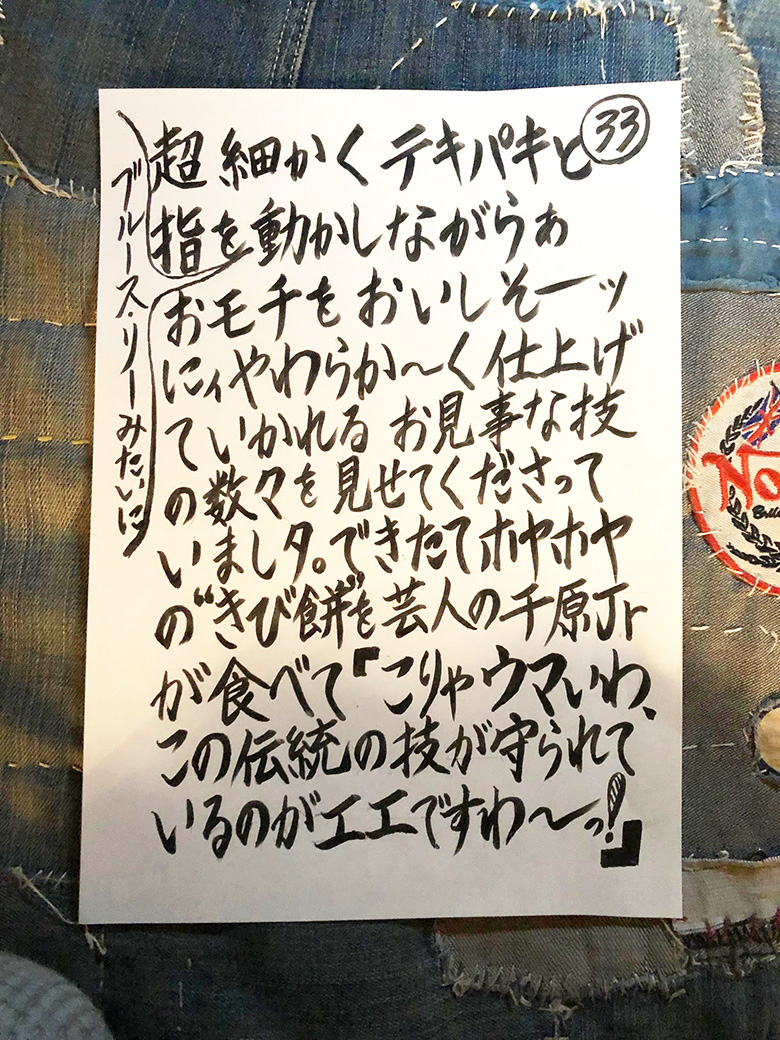 ㉝
超細かくテキパキと
指を動かしながらぁ
おモチをおいしそーッ
にィやわらか〜く仕上げ
ていかれるお見事な技
の数々を見せてくださって
いましタ。できたてホヤホヤ
の“きび餅”を芸人の千原Jr
が食べて『こりゃウマいわ、
この伝統の技が守られて
いるのがエエですわ〜っ!』
ブルース・リーみたいに
No